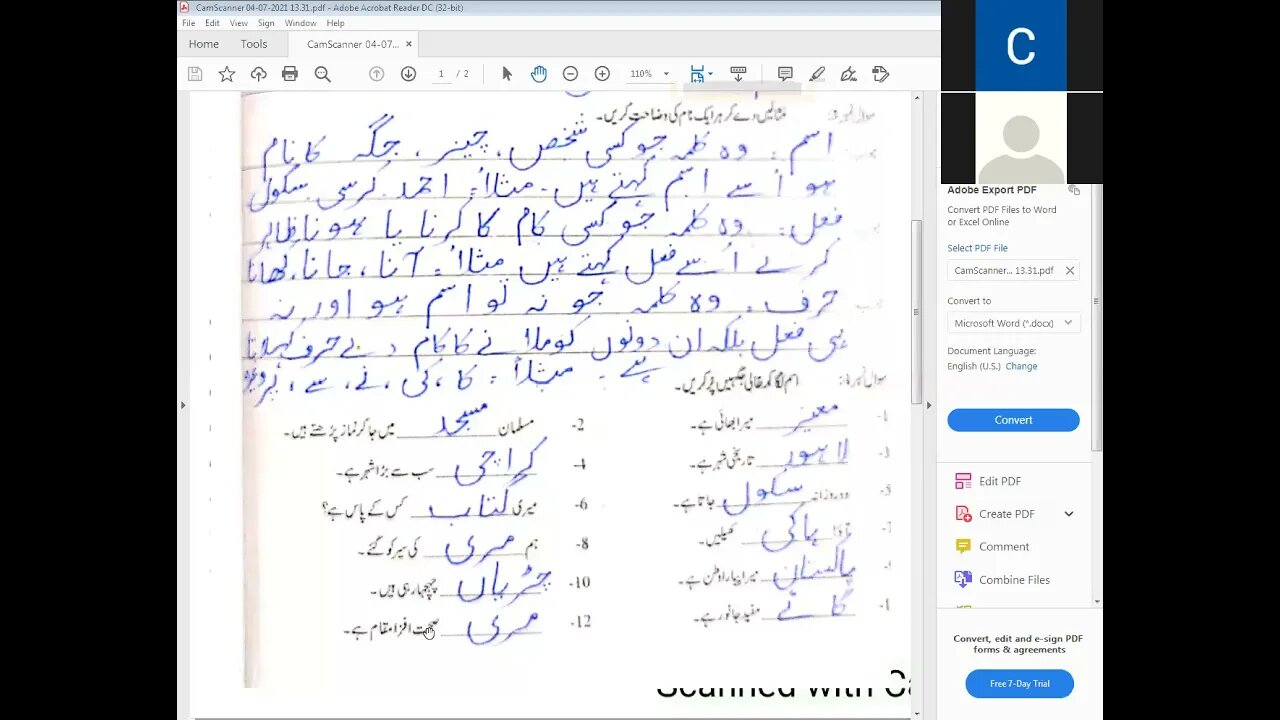 CamScanner 04-07-2021 13.31.pdf - Adobe Acrobat Reader DC (32-bit)
File Edit View Sign Window Help
Home Tools CamScanner 04-07... ×
1 / 2 110%
C
مثالیں دے کر ہر ایک نام کی وضاحت کریں۔
اسم: وہ کلمہ جو کسی شخص، چیز، جگہ کا نام
ہو اُسے اسم کہتے ہیں۔ مثلاً: احمد کرسی سکول
فعل: وہ کلمہ جو کسی کام کا کرنا یا ہونا ظاہر
کرے اُسے فعل کہتے ہیں مثلاً: آنا، جانا، کھانا
حرف: وہ کلمہ جو نہ تو اسم ہو اور نہ
ہی فعل بلکہ ان دونوں کو ملانے کا کام دے حرف کہلاتا
ہے۔ مثلاً: کا، کی، نے، سے، پر وغیرہ
اسم لگا کر خالی جگہیں پُر کریں۔
1- معیز میرا بھائی ہے۔
2- مسلمان مسجد میں جا کر نماز پڑھتے ہیں۔
3- لاہور تاریخی شہر ہے۔
4- کراچی سب سے بڑا شہر ہے۔
5- وہ روزانہ سکول جاتا ہے۔
6- میری کتاب کس کے پاس ہے؟
7- آؤ ہاکی کھیلیں۔
8- ہم مری کی سیر کو گئے۔
پاکستان میرا پیارا وطن ہے۔
10- چڑیاں چہچہا رہی ہیں۔
گائے مفید جانور ہے۔
12- مری صحت افزا مقام ہے۔
Scanned with Ca
Adobe Export PDF
Convert PDF Files to Word
or Excel Online
Select PDF File
CamScanner... 13.31.pdf ×
Convert to
Microsoft Word (*.docx)
Document Language:
English (U.S.) Change
Convert
Edit PDF
Create PDF
Comment
Combine Files
Convert, edit and e-sign PDF
forms & agreements
Free 7-Day Trial